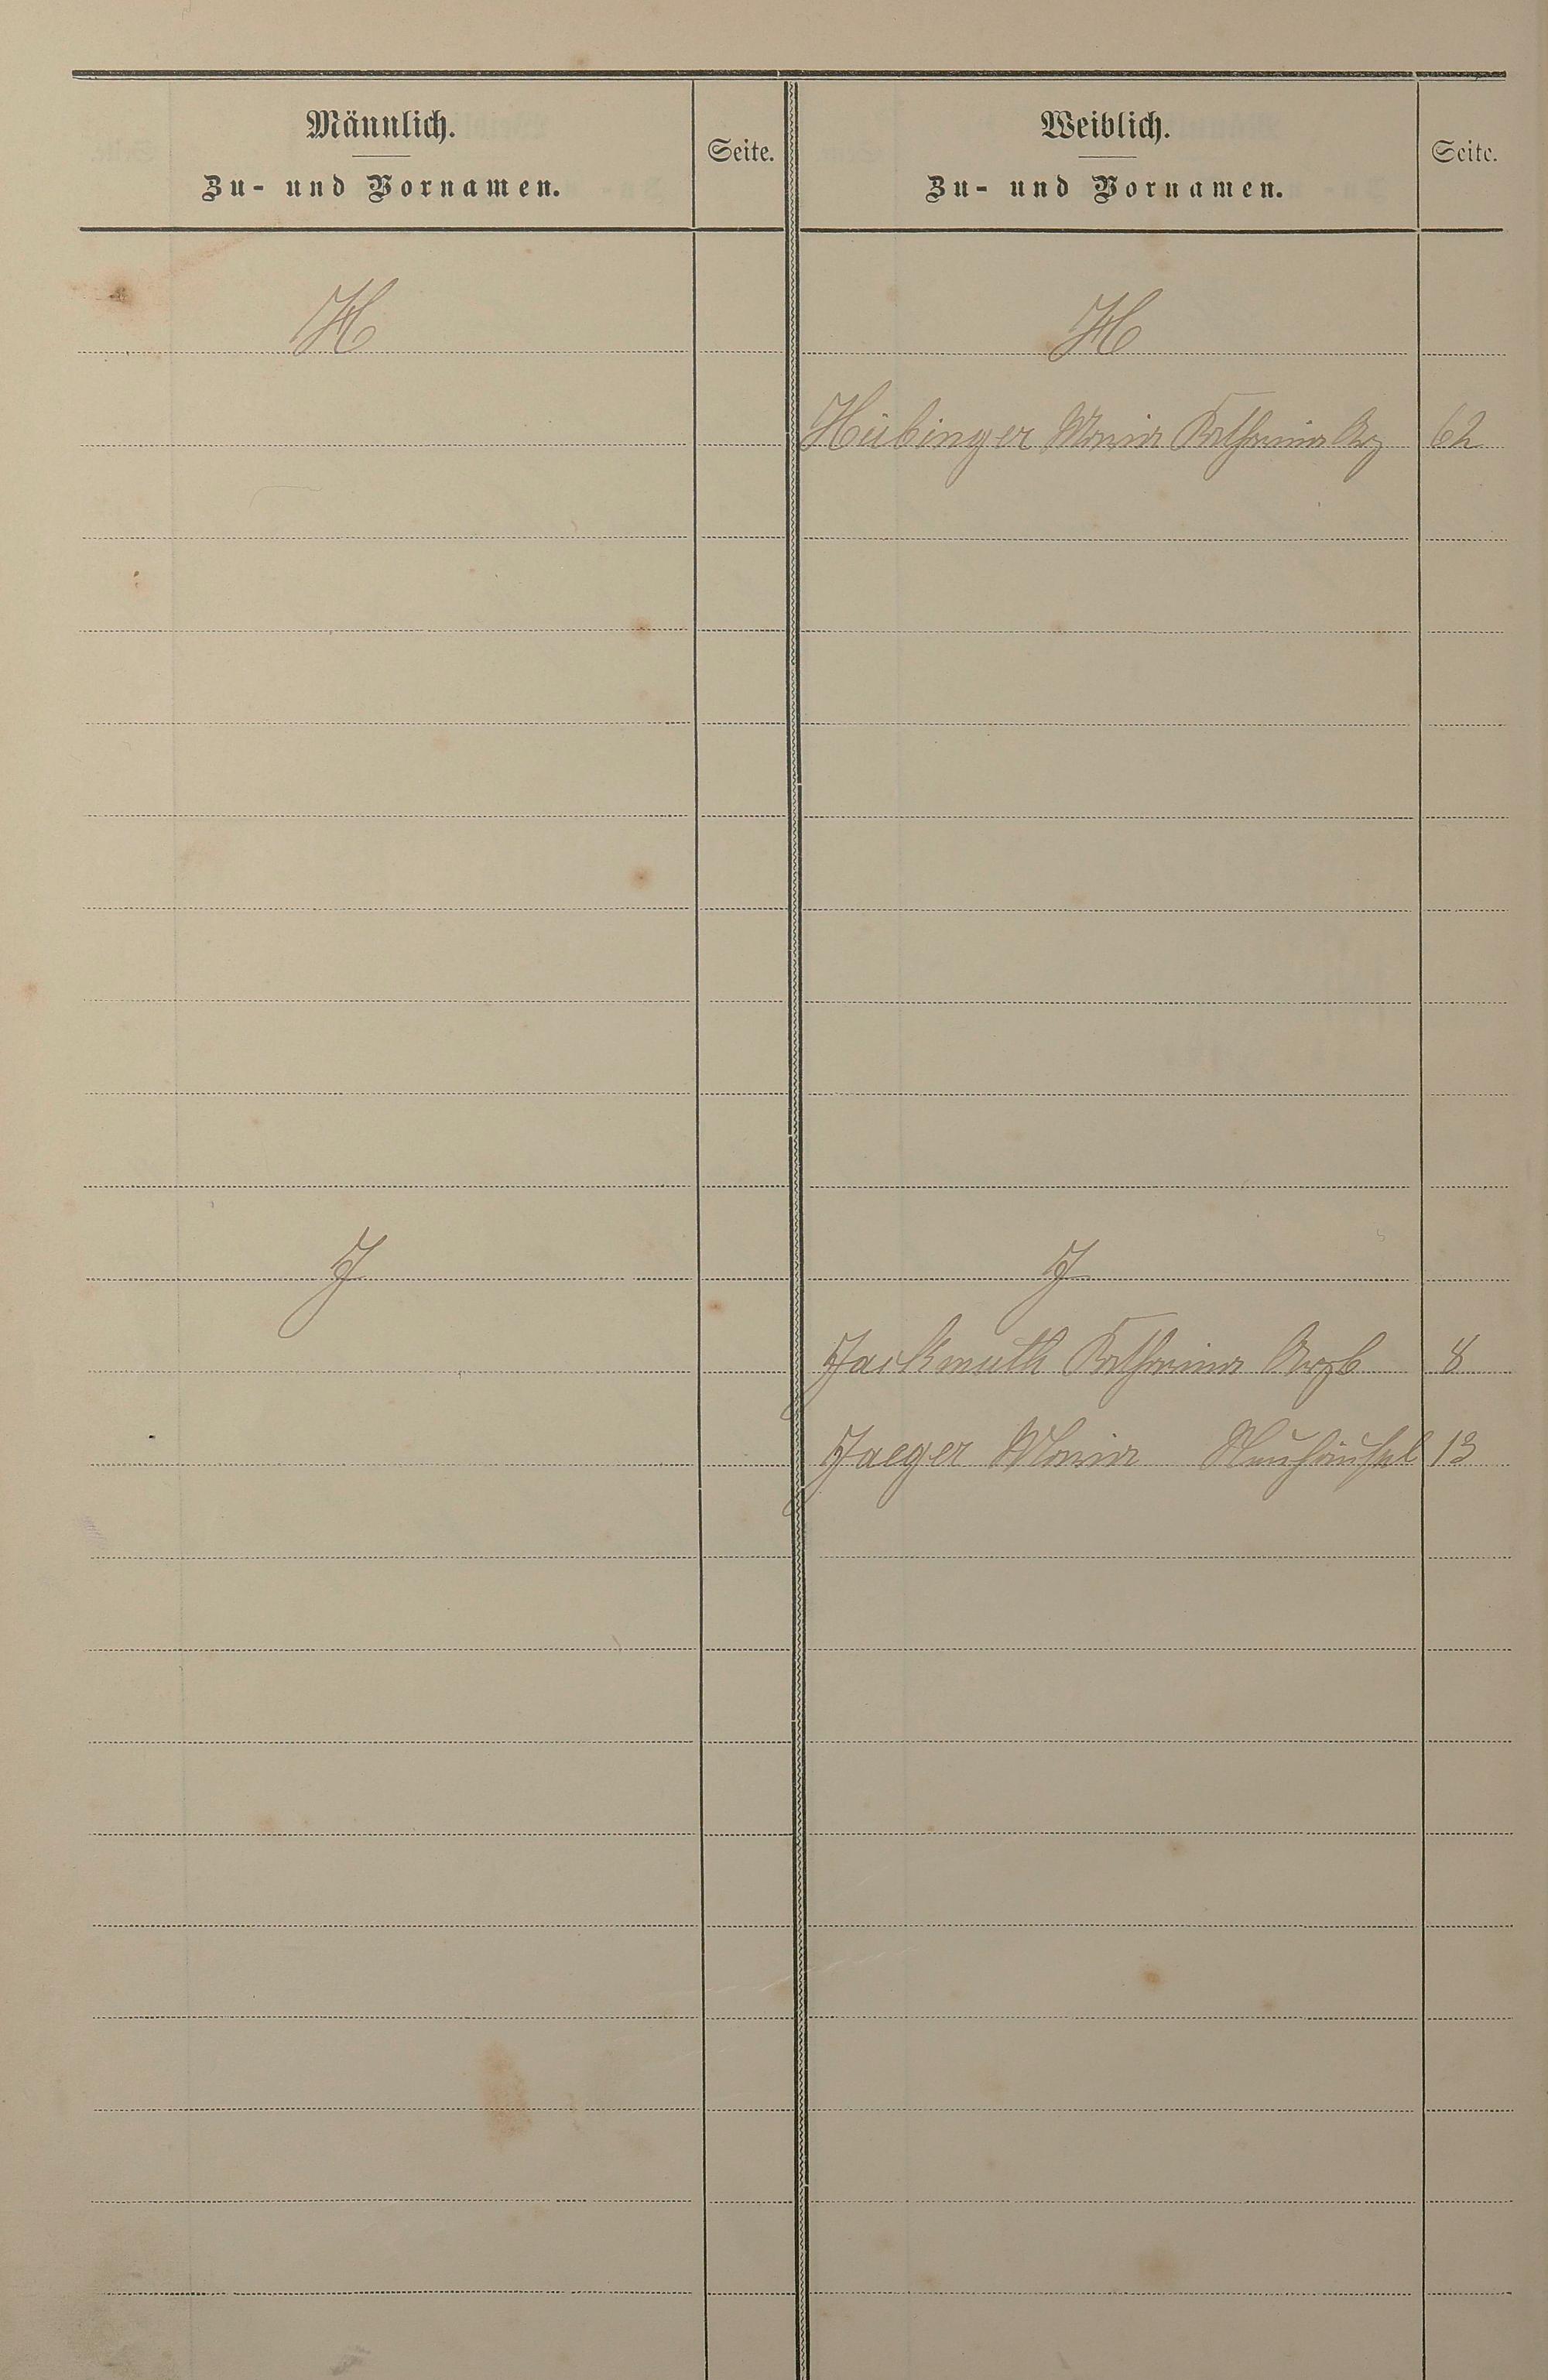 Männlich.
Zu- und Vornamen.
Seite.
Weiblich.
Zu- und Vornamen.
Seite.
H
H
Hübinger Maria Katharina 62
J
J
Jackmuth Katharina 8
Jaeger Maria Neuhäusel 13